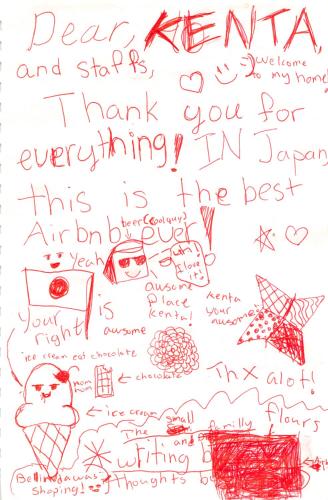 Dear, KENTA,
and staffs,
welcome
to my home!
Thank you for
everything! IN Japan
this is the best
Airbnb ever!
beer(coolguy)
Yeah
I love
it!
awsome
place
kenta!
kenta
your
awsome!
your is
right
awsome
ice cream eat chocolate
nom
nom
← chocolate
Thx alot!
← ice cream
The small
and
flours
writing
Shoping!
Thoughts